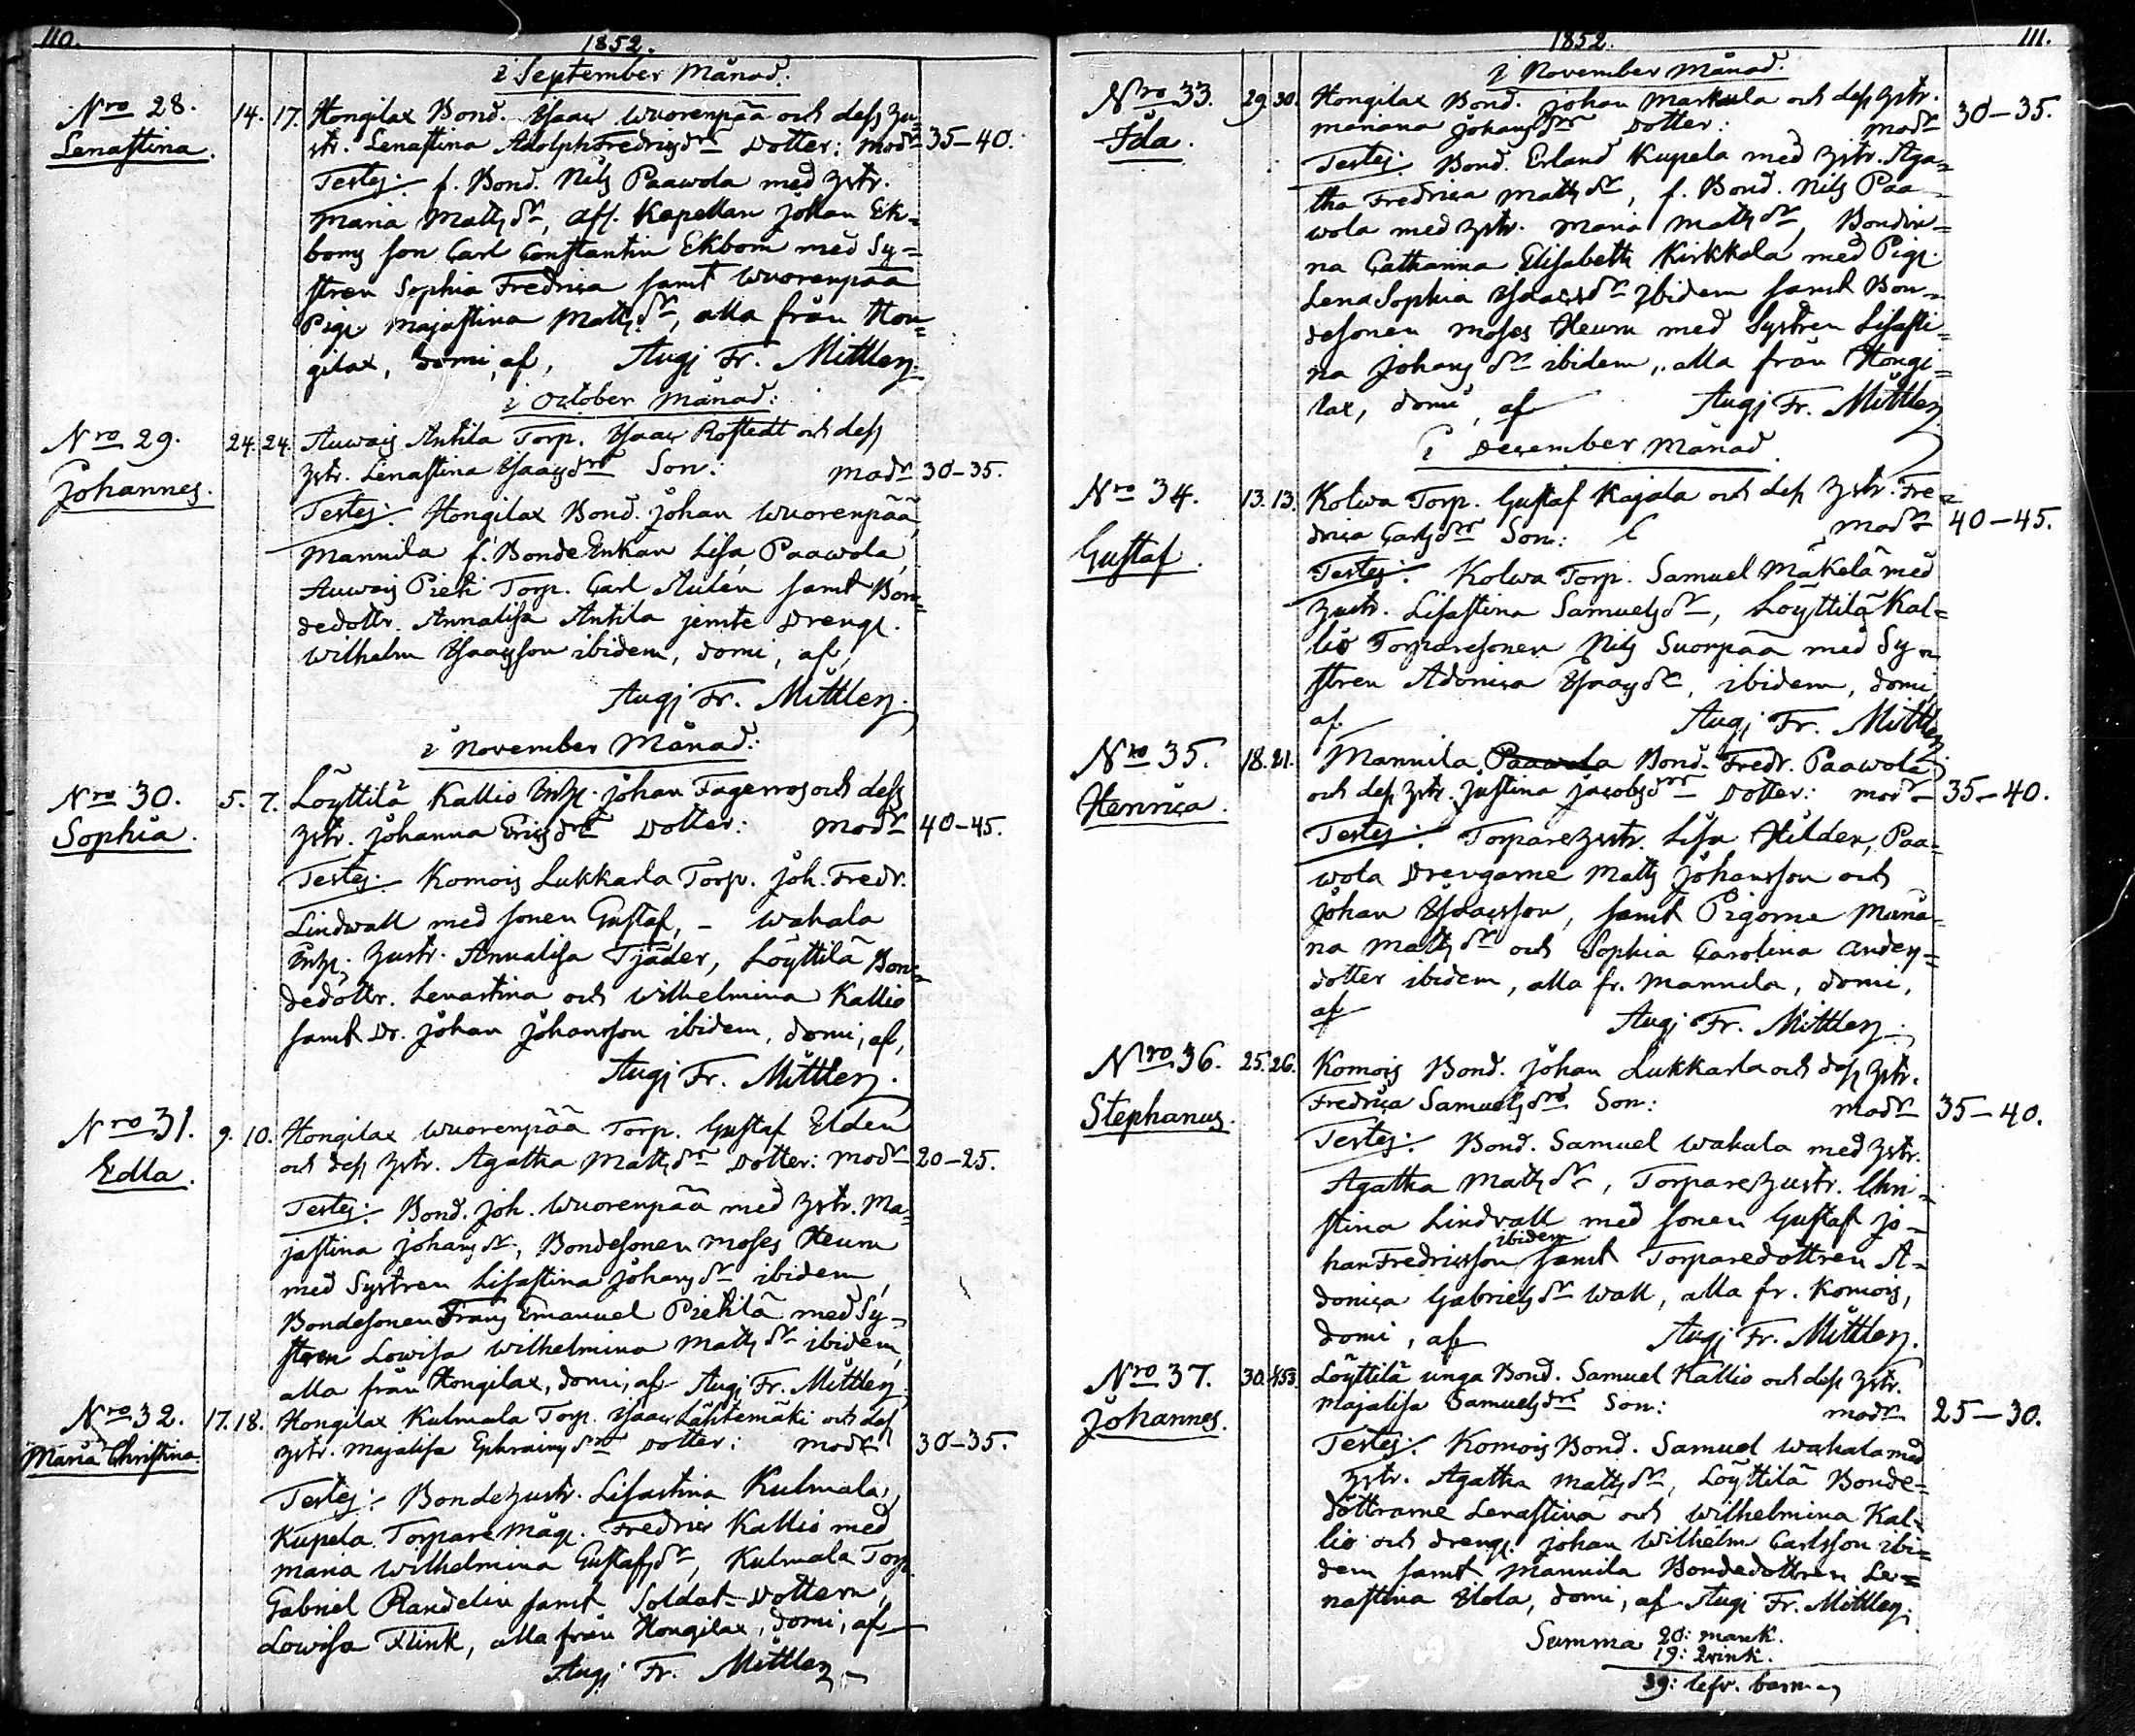 110.
1852.
i September Månad.
Nro 28. 14. 17. Hongilax Bond. Isaac Wuorenpää och dess Zu=
Lenastina. str. Lenastina Adolph Fredricsdr Dotter: modr 35–40.
Testes: f. Bond. Nils Paawola med Zstr.
Maria Mattsdr, afl. Kapellan Johan Ek=
boms son Carl Constantin Ekbom med Sy=
stren Sophia Fredrica samt Wuorenpää
Pig. Majastina Mattsdr, alla från Hon=
gilax, domi, af, Augs Fr. Mittler.
i October Månad:
Nro 29. 24. 24. Auwais Antila Torp. Isaac Rostedt och dess
Johannes. Zstr. Lenastina Isaacsdrs Son: modr 30–35.
Testes: Hongilax Bond. Johan Wuorenpää,
Mannila f. Bonde Enkan Lisa Paawola,
Auwais Pieti Torp. Carl Aulén samt Bon=
dedottr. Annalisa Antila jemte Dreng.
Wilhelm Isaacsson ibidem, domi, af,
Augs Fr. Mittler.
i November Månad:
Nro 30. 5. 7. Löyttilä Kallio Inhs. Johan Fagerros och dess
Sophia. Zstr. Johanna Ericsdrs Dotter: modr 40–45.
Testes: Komois Lukkarla Torp. Joh. Fredr.
Lindwall med sonen Gustaf, – Wahala
Inhs. Zustr. Annalisa Tjäder, Löyttilä Bon=
dedottr. Lenastina och Wilhelmina Kallio
samt Dr. Johan Johansson ibidem, domi, af,
Augs Fr. Mittler.
Nro 31. 9. 10. Hongilax Wuorenpää Torp. Gustaf Elden
Edla. och dess Zstr. Agatha Mattsdr Dotter: modr 20–25.
Testes: Bond. Joh. Wuorenpää med Zstr. Ma=
jastina Johansdr, Bondesonen Moses Heurn
med Systren Lisastina Johansdr ibidem,
Bondesonen Frans Emanuel Pietilä med Sy=
stren Lowisa Wilhelmina Mattsdr ibidem,
alla från Hongilax, domi, af Augs Fr. Mittler.
Nro 32. 17. 18. Hongilax Kulmala Torp. Isaac Lähtemäki och dess
Maria Christina. Zstr. Majalisa Ephraimsdrs Dotter: modr 30–35.
Testes: Bondezustr. Lisastina Kulmala,
Kupela Torpare Mågs. Fredric Kallio med
Maria Wilhelmina Gustafsdr, Kulmala Torp.
Gabriel Randelin samt Soldat-Dottern
Lowisa Flink, alla från Hongilax, domi, af
Augs Fr. Mittler
1852.
111.
i November Månad.
Nro 33. 29. 30. Hongilax Bond. Johan Markula och dess Zstr.
Ida. Mariana Johansdrs Dotter: modr 30–35.
Testes: Bond. Erland Kupela med Zstr. Aga=
tha Fredrica Mattsdr, f. Bond. Nils Paa=
wola med Zstr. Maria Mattsdr, Bondin=
na Catharina Elisabeth Kirkkala med Pig.
Lena Sophia Isaacsdr Ibidem samt Bon=
desonen Moses Heurn med Systren Lisasti=
na Johansdr ibidem, alla från Hongi=
lax, domi, af Augs Fr. Mittler.
i December Månad.
Nro 34. 13. 13. Kolwa Torp. Gustaf Kajala och dess Zstr. Fre=
Gustaf. drica Carlsdrs Son: modr 40–45.
Testes: Kolwa Torp. Samuel Mäkelä med
Zustr. Lisastina Samuelsdr, Löyttilä Kal=
lio Torparesonen Nils Suorpää med Sy=
stren Adonica Isaacsdr, ibidem, domi,
af. Augs Fr. Mittler
Nro 35. 18. 21. Mannila Paawola Bond. Fredr. Paawola
Henrica. och dess Zstr. Justina Jacobsdrs Dotter: modr 35–40.
Testes: Torparezustr. Lisa Hilden, Paa=
wola Drengarne Matts Johansson och
Johan Isaacsson, samt Pigorne Maria=
na Mattsdr och Sophia Carolina Anders=
dotter ibidem, alla fr. Mannila, domi,
af Augs Fr. Mittler.
Nro 36. 25. 26. Komois Bond. Johan Lukkarla och dess Zstr.
Stephanus. Fredrica Samuelsdrs Son: modr 35–40.
Testes: Bond. Samuel Wahala med Zstr.
Agatha Mattsdr, Torparezustr. Chri=
stina Lindvall med sonen Gustaf Jo=
ibidem
han Fredricsson samt Torparedottren A=
donica Gabrielsdr Wall, alla fr. Komois,
domi, af Augs Fr. Mittler.
Nro 37. 30. 1/53. Löyttilä unga Bond. Samuel Kallio och dess Zstr.
Johannes. Majalisa Samuelsdrs Son: modr 25–30.
Testes: Komois Bond. Samuel Wahala med
Zstr. Agatha Mattsdr, Löyttilä Bonde=
döttrarne Lenastina och Wilhelmina Kal=
lio och dreng. Johan Wilhelm Carlsson ibi=
dem samt Mannila Bondedottren Le=
nastina Ylola, domi, af Augs Fr. Mittler.
Summa 20: mank.
19: qvink.
39: lefv. barn